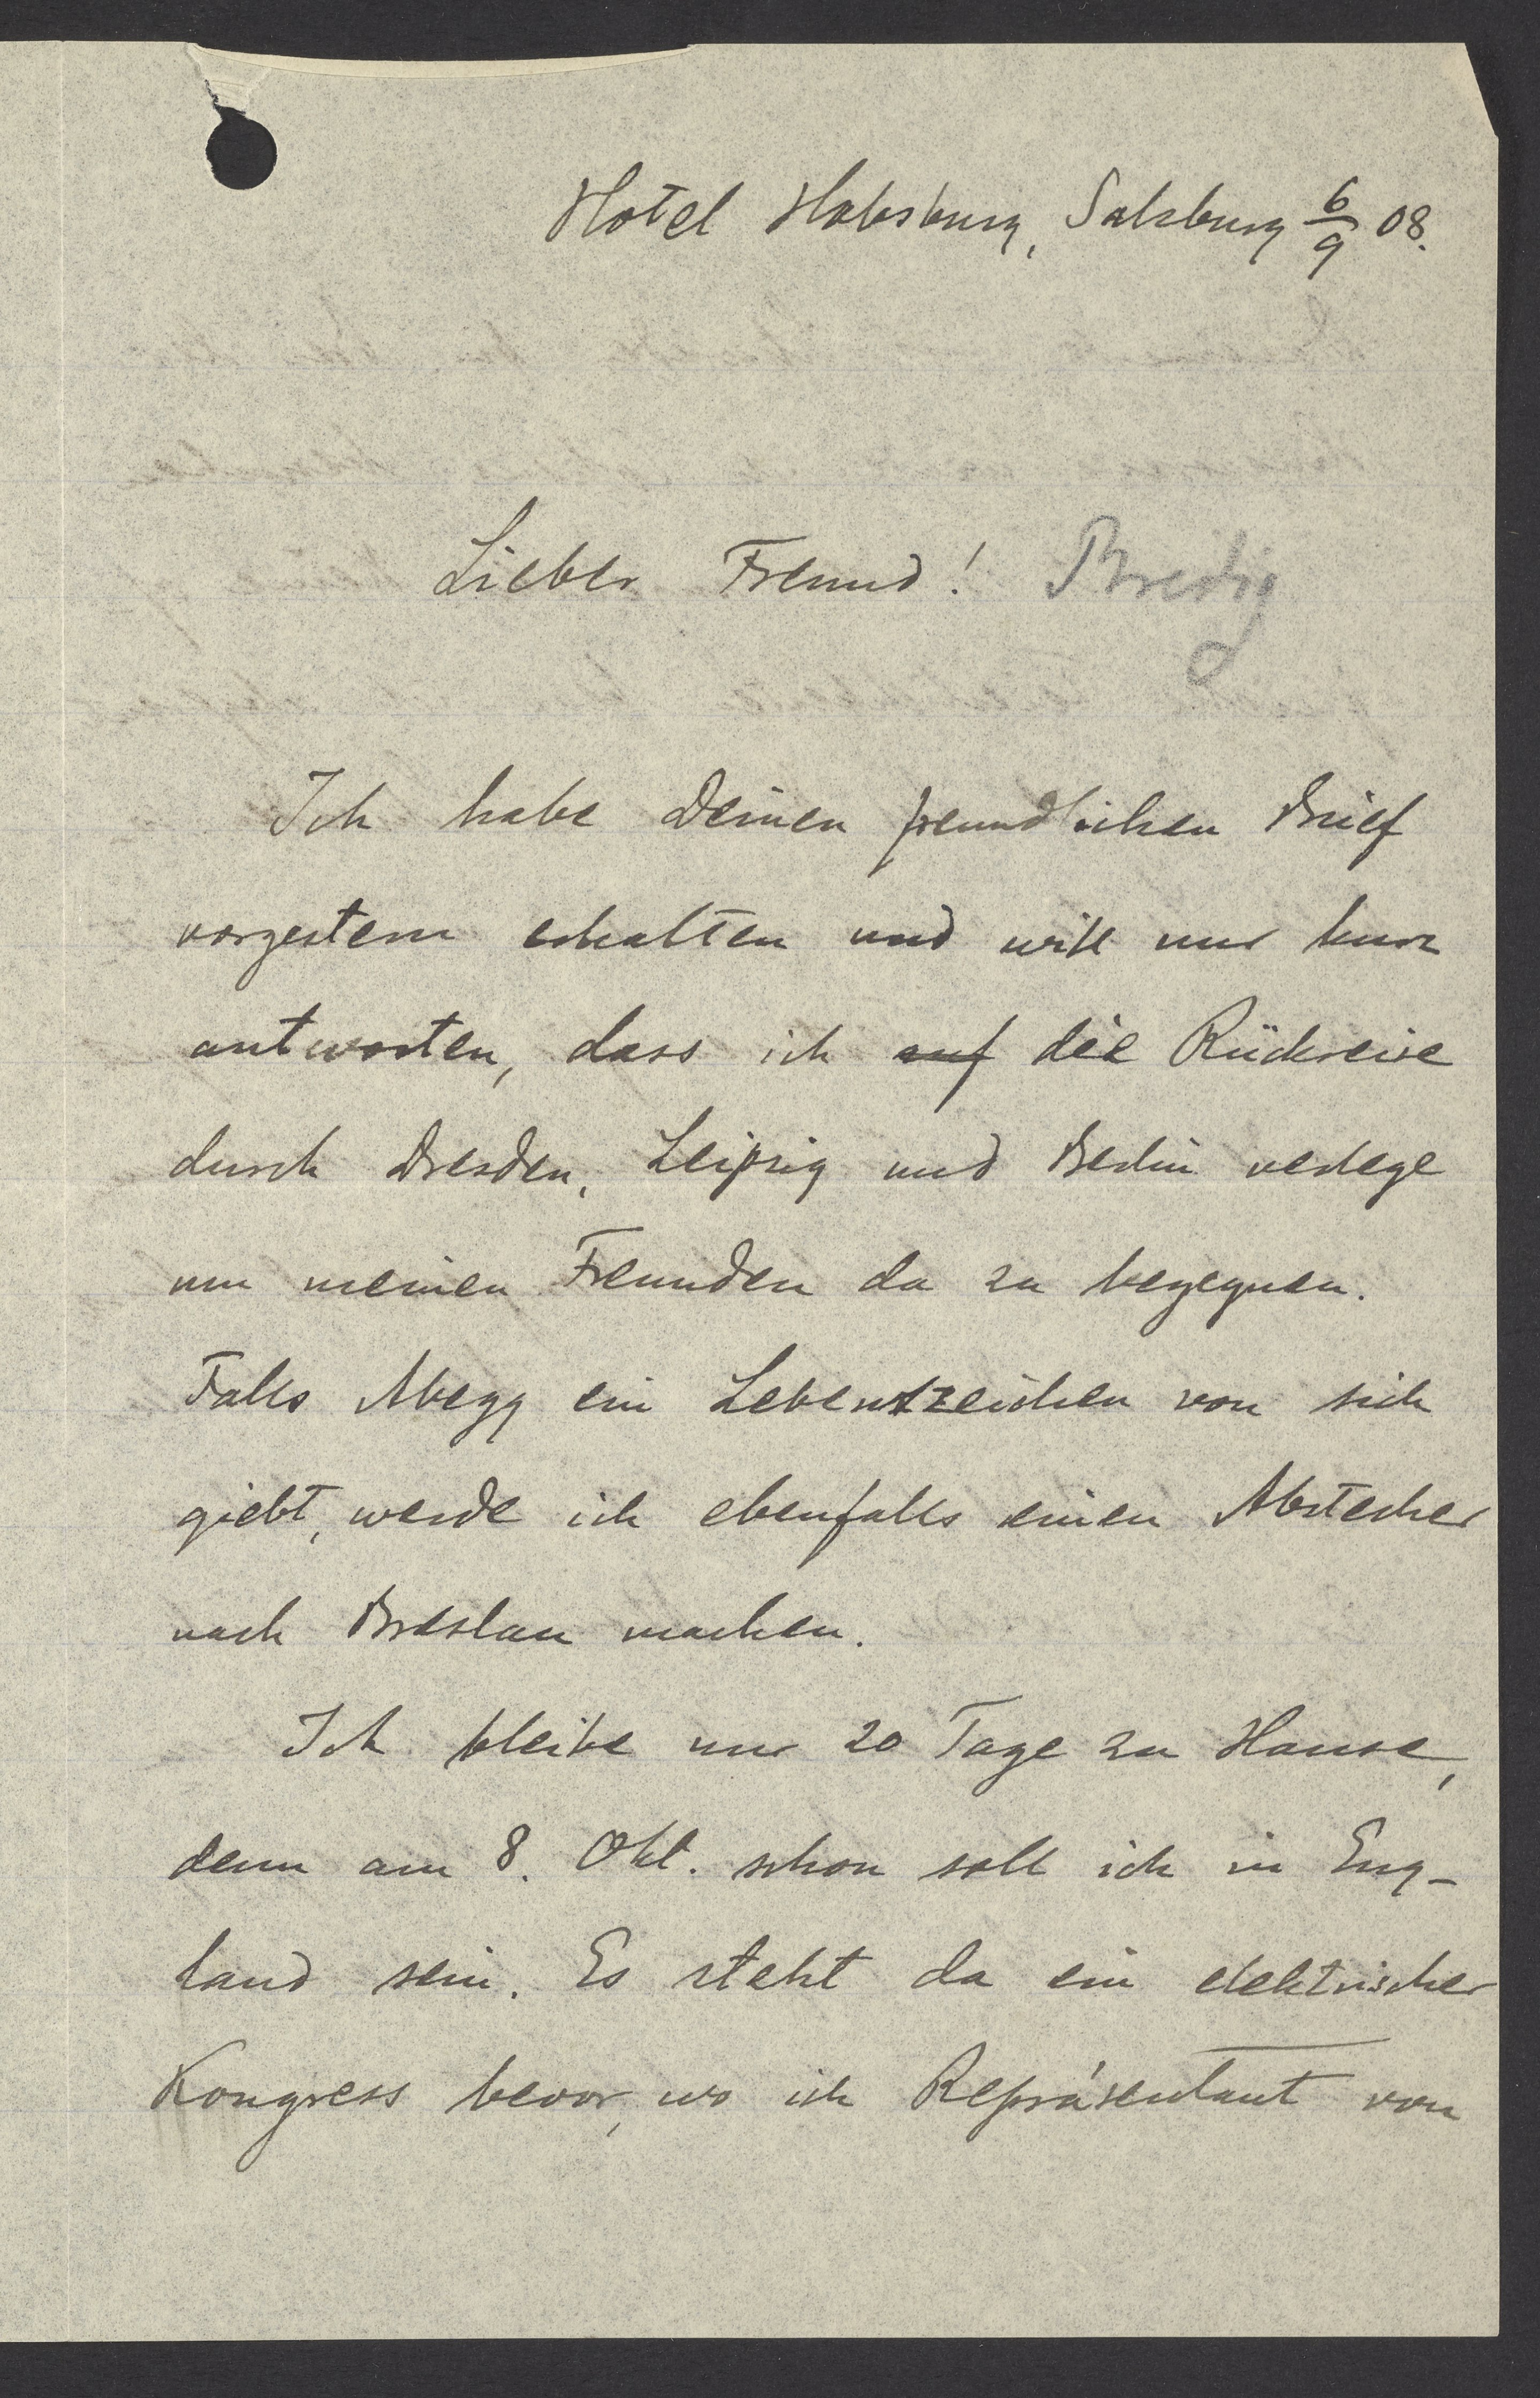 Hotel Habsburg, Salzburg 6/9 08.
Lieber Freund! Bredig
Ich habe Deinen freundlichen Brief
vorgestern erhalten und will nur kurz
antworten, dass ich auf die Rückreise
durch Dresden, Leipzig und Berlin verlege
um meinen Freunden da zu begegnen.
Falls Abegg ein Lebenszeichen von sich
giebt, werde ich ebenfalls einen Abstecher
nach Breslau machen.
Ich bleibe nur 20 Tage zu Hause,
denn am 8. Okt. schon soll ich in Eng-
land sein. Es steht da ein elektrischer
Kongress bevor, wo ich Repräsentant von